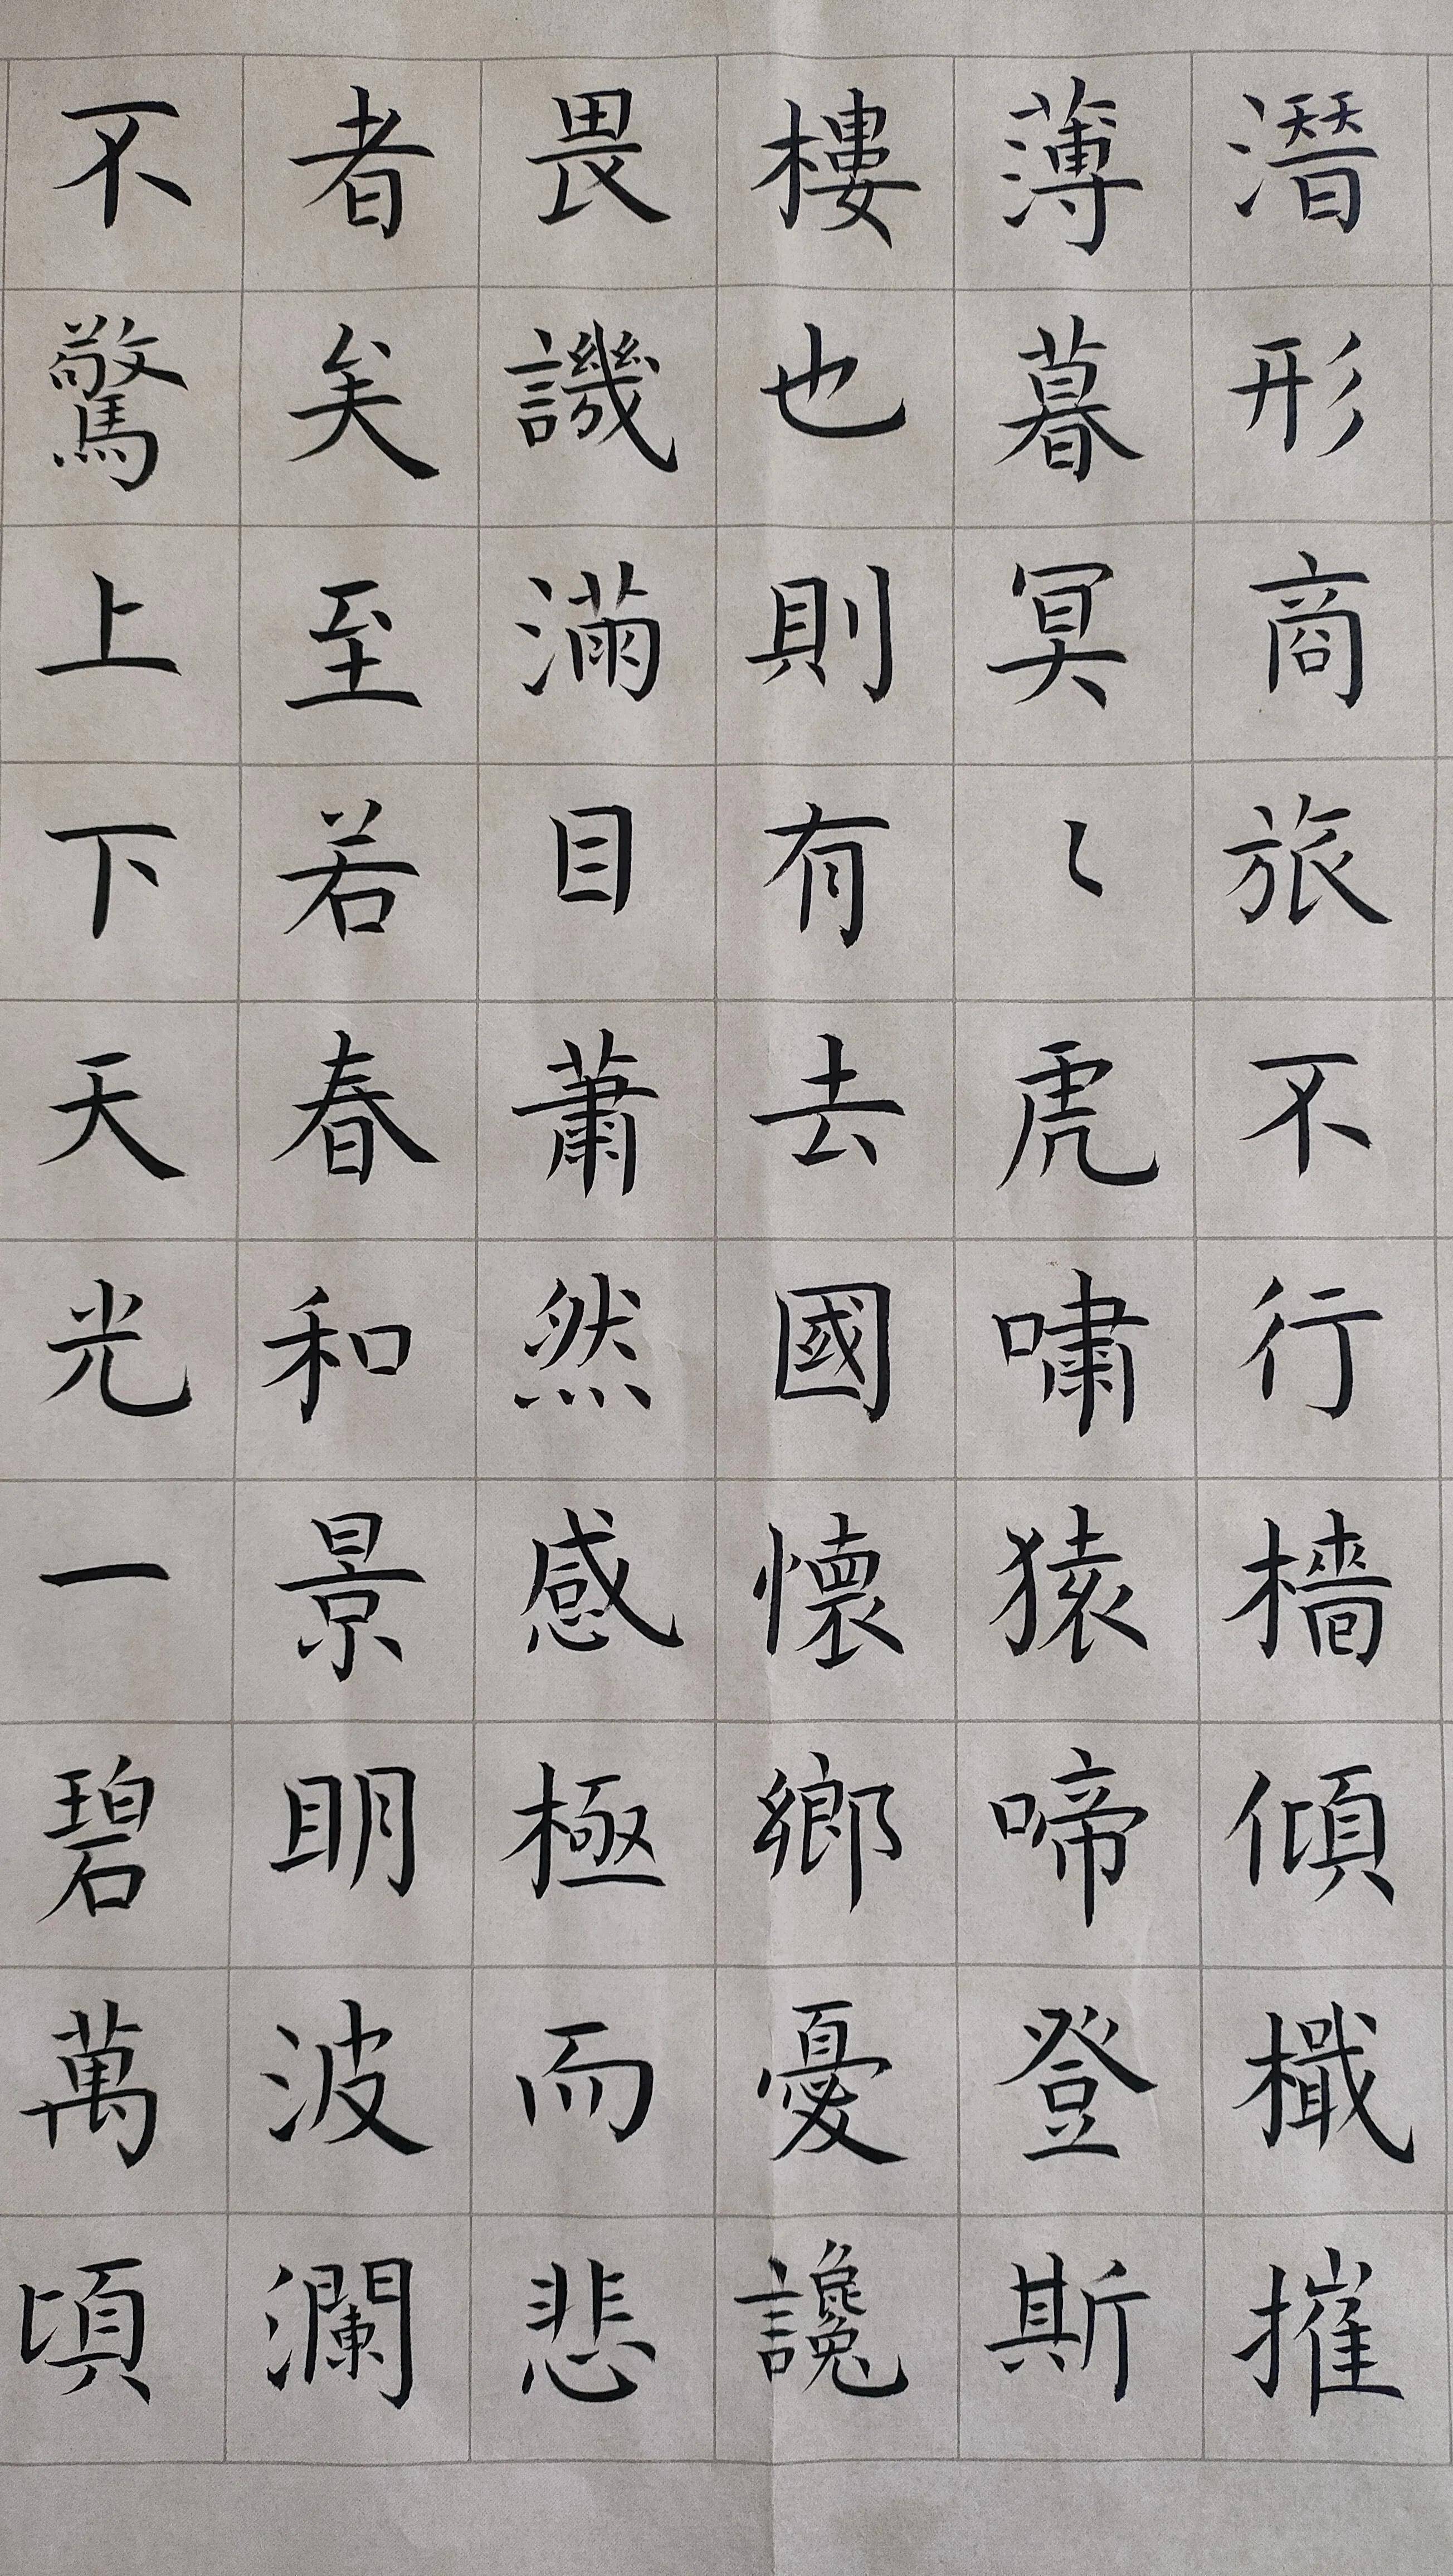 潛形商旅不行檣傾檝摧
薄暮冥〻虎嘯猿啼登斯
樓也則有去國懷鄉憂讒
畏譏滿目蕭然感極而悲
者矣至若春和景明波瀾
不驚上下天光一碧萬頃